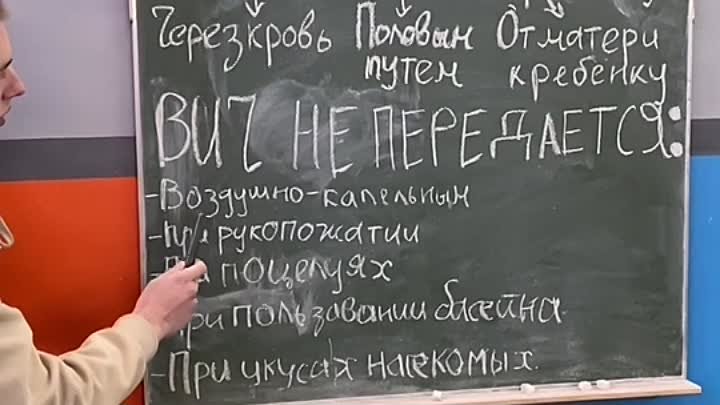 Через кровь Половым От матери
путем к ребенку
ВИЧ НЕ ПЕРЕДАЕТСЯ:
-Воздушно-капельным
-При рукопожатии
-При поцелуях
-При пользовании басейна
-При укусах насекомых.